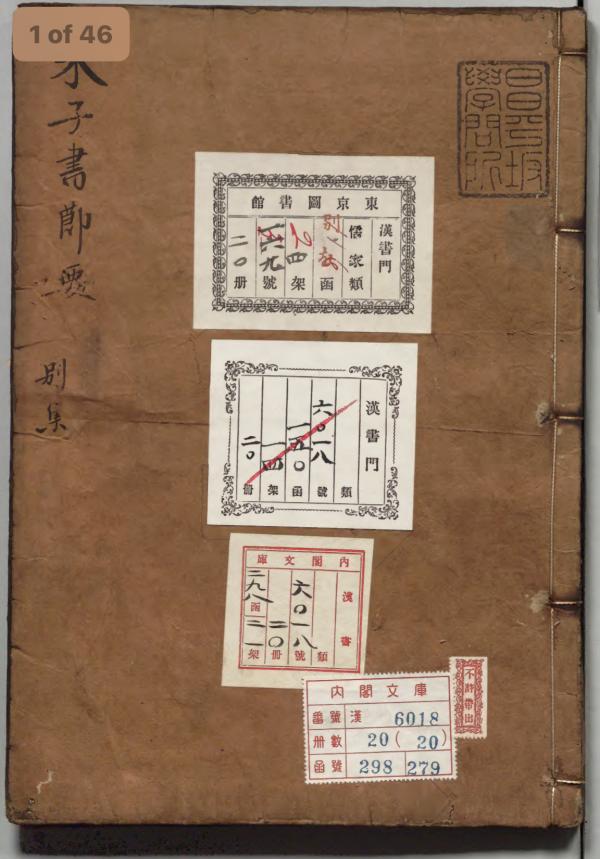 1 of 46
朱子書節要
別集
昌平坂
學問所
東京圖書館
漢書門
儒家類
別一
函
四架
六九號
二〇册
漢書門
類
六〇一八號
一五〇函
一四架
二〇册
內閣文庫
漢書
類
六〇一八號
二〇册
二九八函
二一架
不許帶出
內閣文庫
番號 漢 6018
册數 20( 20)
函號 298 279